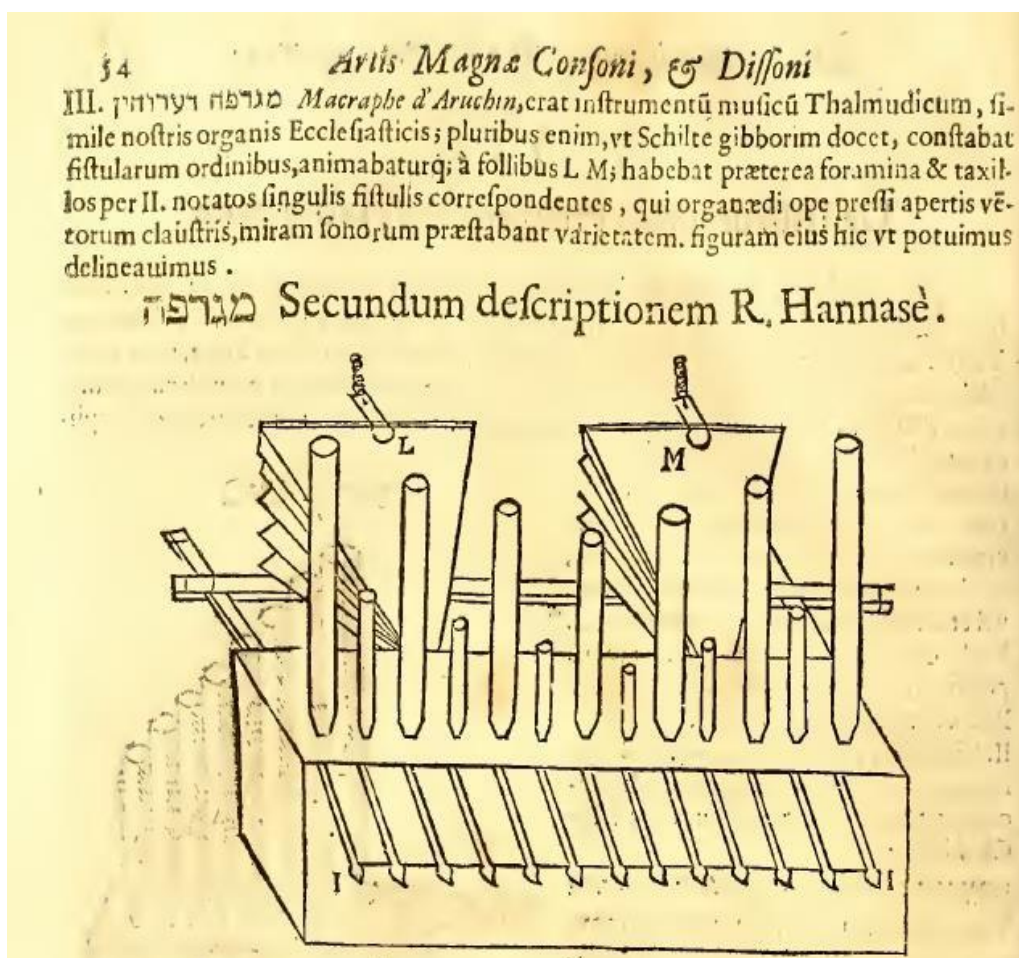 54 Artis Magnæ Conſoni, & Diſſoni
III. מגרפה דערוחין Macraphe d'Aruchin, erat inſtrumentū muſicū Thalmudicum, ſi-
mile noſtris organis Eccleſiaſticis; pluribus enim, vt Schilte gibborim docet, conſtabat
fiſtularum ordinibus, animabaturq; à follibus L M; habebat præterea foramina & taxil-
los per II. notatos ſingulis fiſtulis correſpondentes, qui organædi ope preſſi apertis vē-
torum clauſtris, miram ſonorum præſtabant varietatem. figuram eius hic vt potuimus
delineauimus.
מגרפה Secundum deſcriptionem R. Hannasè.
L M
I I